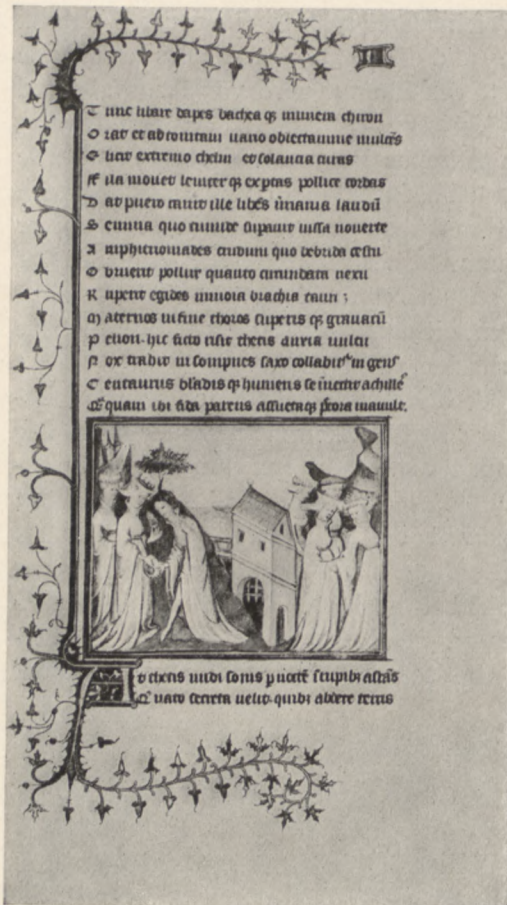 III
Tunc libare dapes bachea q; munera chiron
Orat et ad tonitam uario oblectamine mulcēs
Elicit extremo chelin et solancia curas
Fila mouet leuiter q; exptas pollice cordas
Dat puero canit ille libēs īmania laudū
Semina quo tumide supauit iussa nouerce
Amphitrioniades crudum quo bebrida cestu
Obruerit pollux quanto circundata nexu
Ruperit egides minoia brachia tauri;
Maternos in fine thoros superis q; grauatū
Pelion. hic ficto risit thetis anxia uultu
Nox trahit in sompnos saxo collabitur ingens
Centaurus blādis q; humeris se īnectit achilles
Quam ibi fida parens assueta q; pectora mauult.
At thetis undi sonis p noctē rupibus astās
Q nato secreta uelit. quibus abdere terris